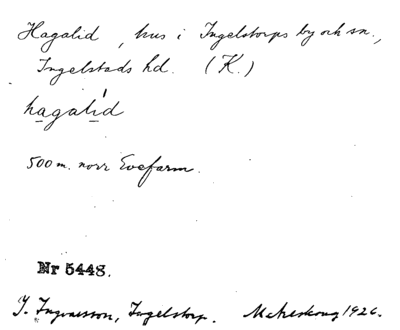 Hagalid, hus i Ingelstorps by och sn.,
Ingelstads hd. (K.)
hagalid
500 m. norr Evefarm.
Nr 5448.
J. Ingvarsson, Ingelstorp. 1926.